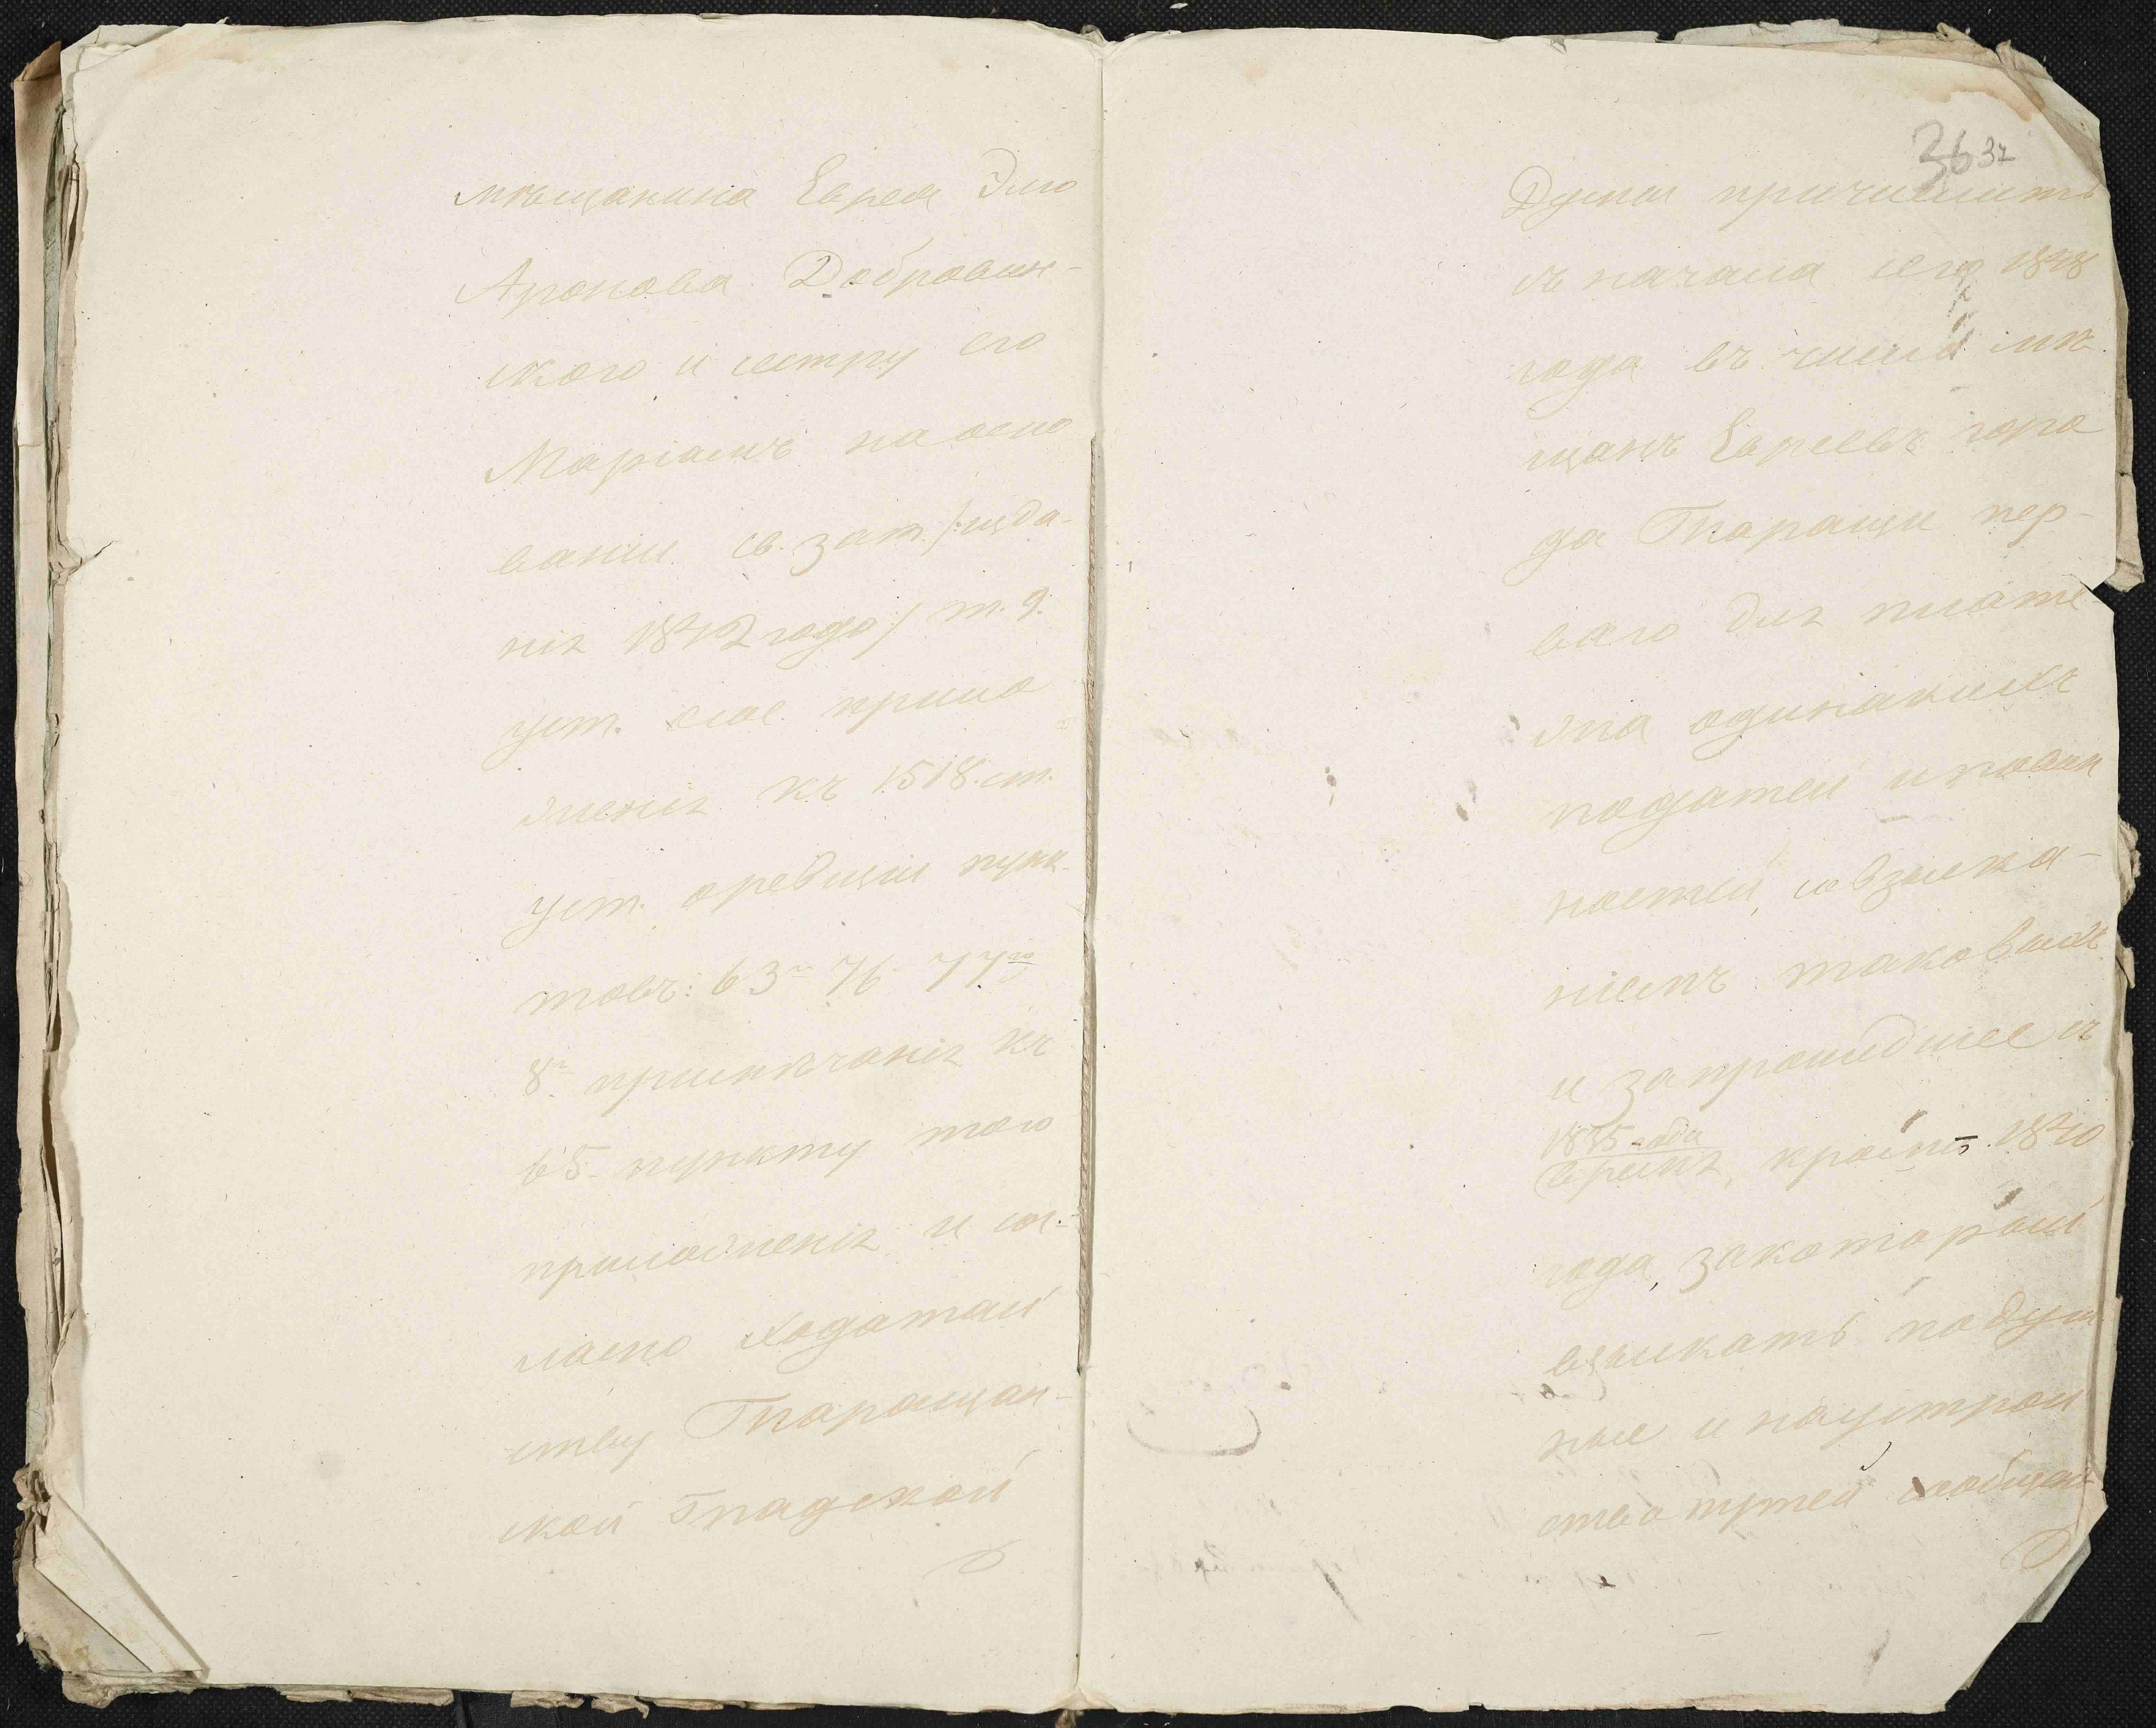 мѣщанина Еврея Элю
Аронова Добровин-
скаго и сестру его
Маріамъ на осно
ваніи св. зак. /: изда-
нія 1842 года / т. 9.
уст. о сос. прило
женія къ 1518. ст.
уст. о ревизіи пунк-
товъ: 63го 76 77го
8го примѣчанія къ
65. пункту того
приложенія и со-
гласно ходатай
ству Таращан-
ской Градской
36 37
Думы причислить
съ начала сего 1848
года въ число мѣ
щанъ Евреевъ горо
да Таращи пер-
ваго для плате-
жа одинакихъ
податей и повин
ностей, со взыска-
ніемъ таковыхъ
и за прошедшее съ
1845 года
время, кромѣ 1840
года, за который
взыскать подуш
ные и на устрой
ство путей сообщен